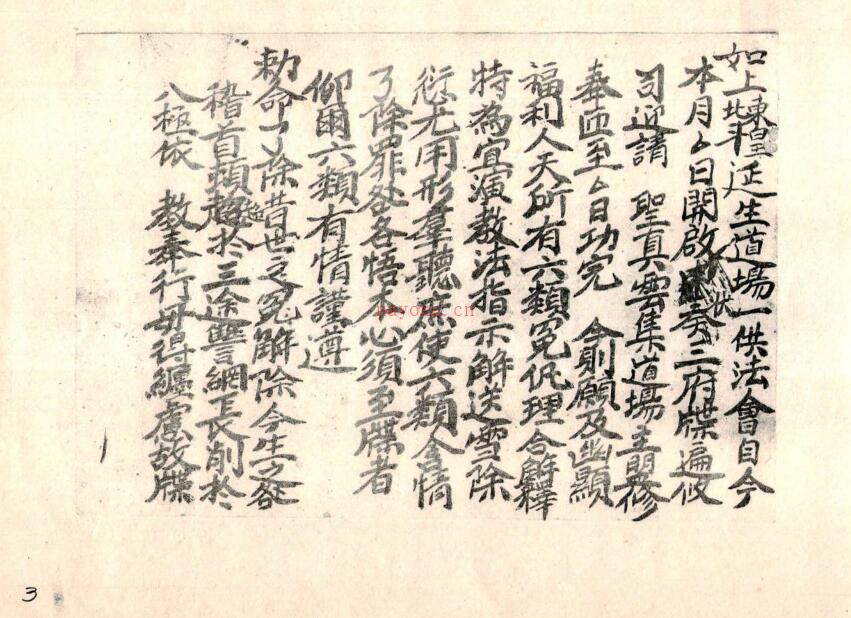 如上拔亡延生道場一供法會自今
本月厶日開啟 發三府牒遍攸
司迎請 聖真雲集道場主盟修
奉至厶日功完 今則願及幽顯
福利人天所有六類冤仇理合解釋
特為宣演教法指示解送雪除
愆尤用形羣聽庶使六類含情
了除罪咎各悟本心須至牒者
仰爾六類有情謹遵
勅命了除昔世之冤解除今生之咎
稽首頭超於三途讐網長削於
八極依 教奉行毋得纏慮故牒
hayona.cn
3